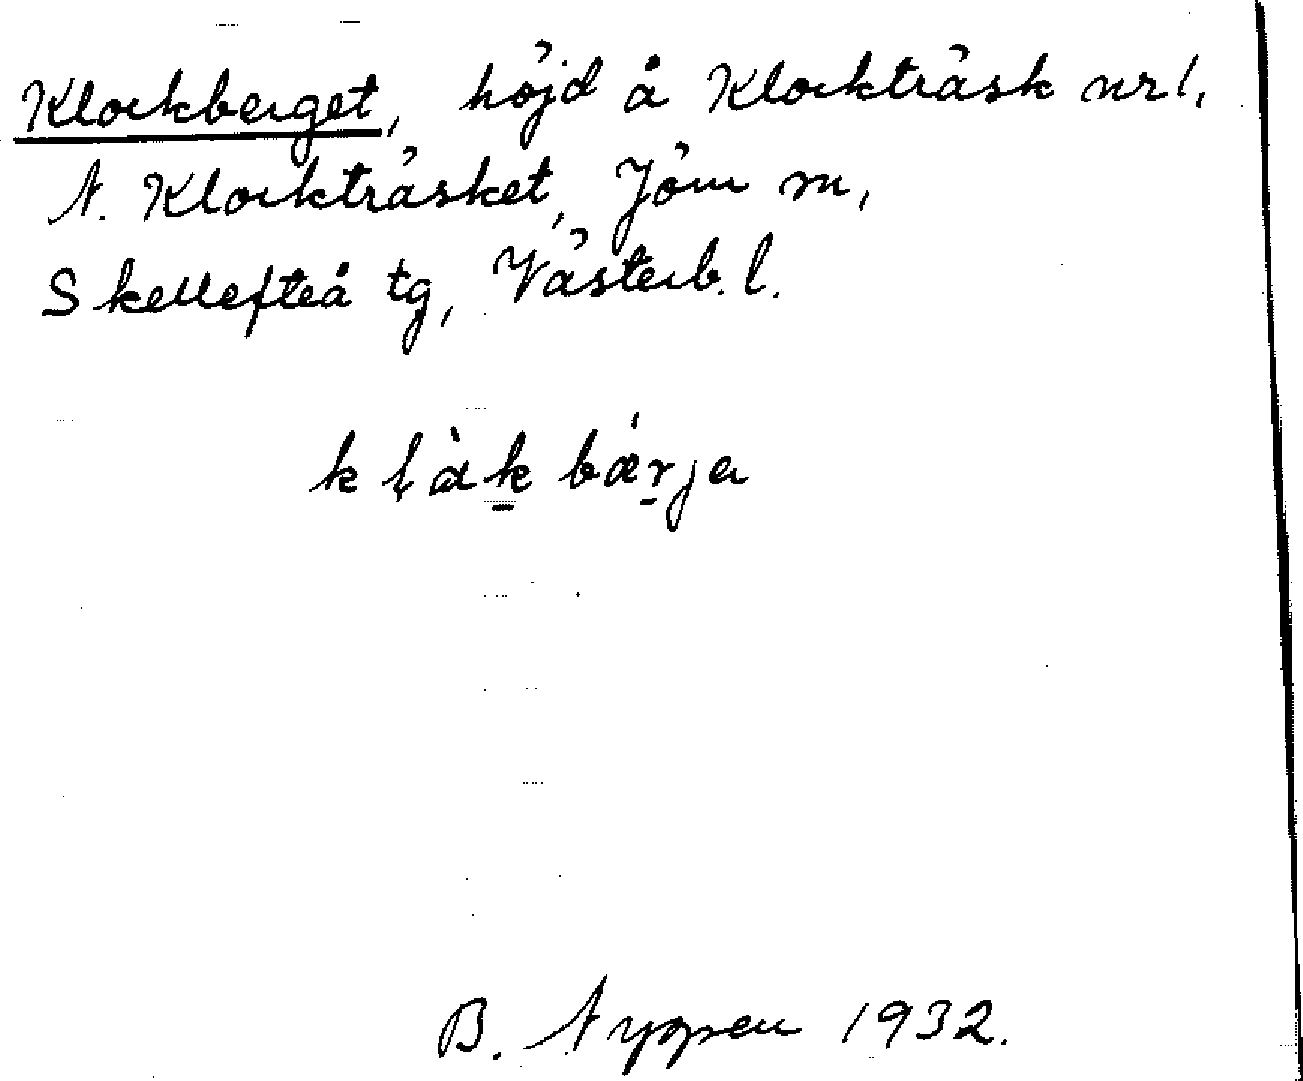 Klockberget, höjd å Klockträsk nr 1,
N. Klockträsket, Jörn sn,
Skellefteå tg, Västerb. l.
klàkbǽrja
B. Nyqvist 1932.